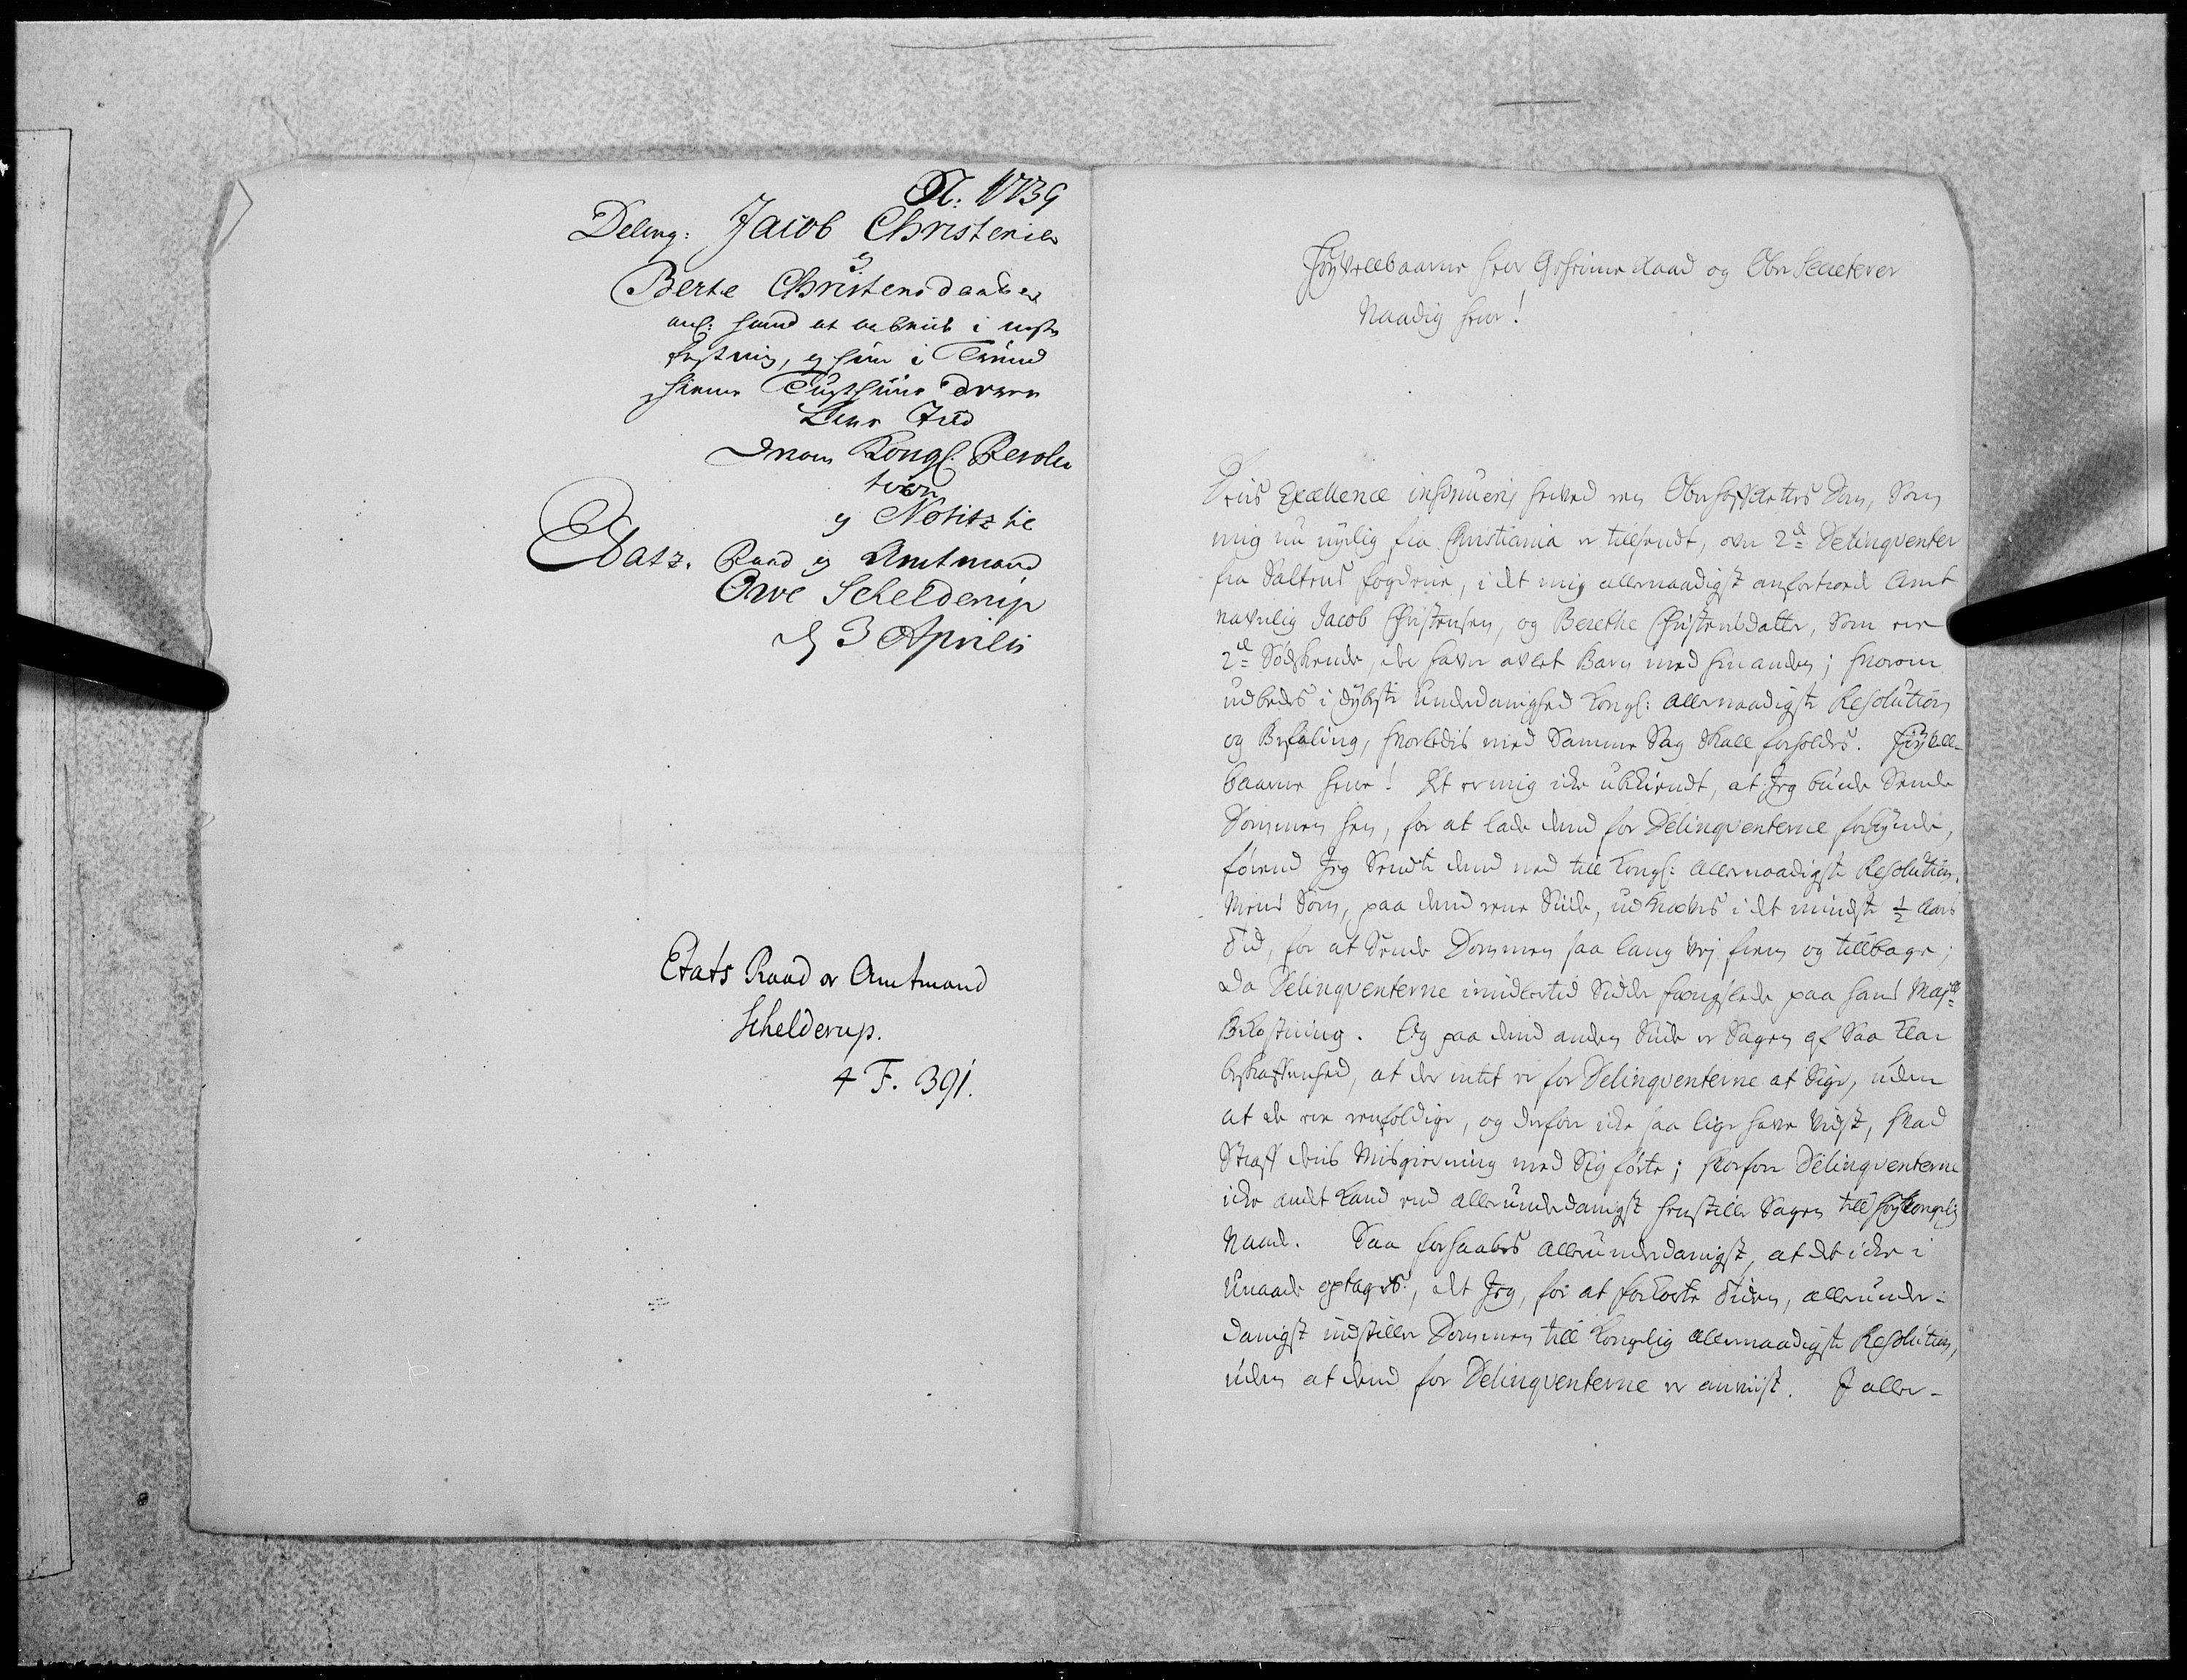 N: 1739
Delinq: Jacob Christensen
og
Berte Christensdaatter
anl: hand at arbeide i neste
festning, og hun i Trund
hiems Tugthuus deres
Livs Tid
Kongl: Resolu
tion
og Notitz til
Etatz. Raad og Amtmand
Owe Schelderup
d 3 Aprilis
Etats Raad or Amtmand
Schelderup.
4 F. 391.
Høyvelbaarne Herr Geheime Raad og Ober Secreterer
Naadig Herre!
Deris Excellence insinueris herved en Oberhoffrettes Dom, som
mig nu nylig fra Christiania er tillsendt, over 2de Delinqventer
fra Saltens fogderie, i det mig allernaadigst anfortroed Amt
navnlig Jacob Christensen, og Berethe Christensdatter, som ere
2de Sødskende, der haver avlet Barn med hinanden; hvorom
udbedes i dybeste Underdanighed Kongl: allernaadigste Resolution
og Befaling, hvorledis med Samme Sag skall forholdes. Høyvell-
baarne Herre! Det er mig icke ubekiendt, at Jeg burde sende
Dommen hen, for at lade dend for Delinqventerne forkynde,
førend Jeg sendte dend ned till Kongl: allernaadigste Resolution.
Mens som, paa dend eene Siide, udkræves i det mindste 1/2 Aars
Tid, for at sende Dommen saa lang Vej frem og tillbage;
da Delinqventerne imidlertid sidder fængslede paa hans Mayts
Bekostning. Og paa dend anden Siide er Sagen af saa klar
beskaffenhed, at der intet er for Delinqventerne at sige, uden
at de ere eenfoldige, og derfore icke saa lige have vidst, hvad
Straff deris Misgierning med sig førte; hvorfore Delinqventerne
icke andet kand end allerunderdanigst henstille Sagen till høykongelig
Naade. Saa forhaabes allerunderdanigst, at det icke i
Unaade optages, at Jeg, for at forkorte Tiden, allerunder-
danigst indstiller Dommen till Kongelig allernaadigste Resolution,
uden at dend for Delinqventerne er anviist. J aller-